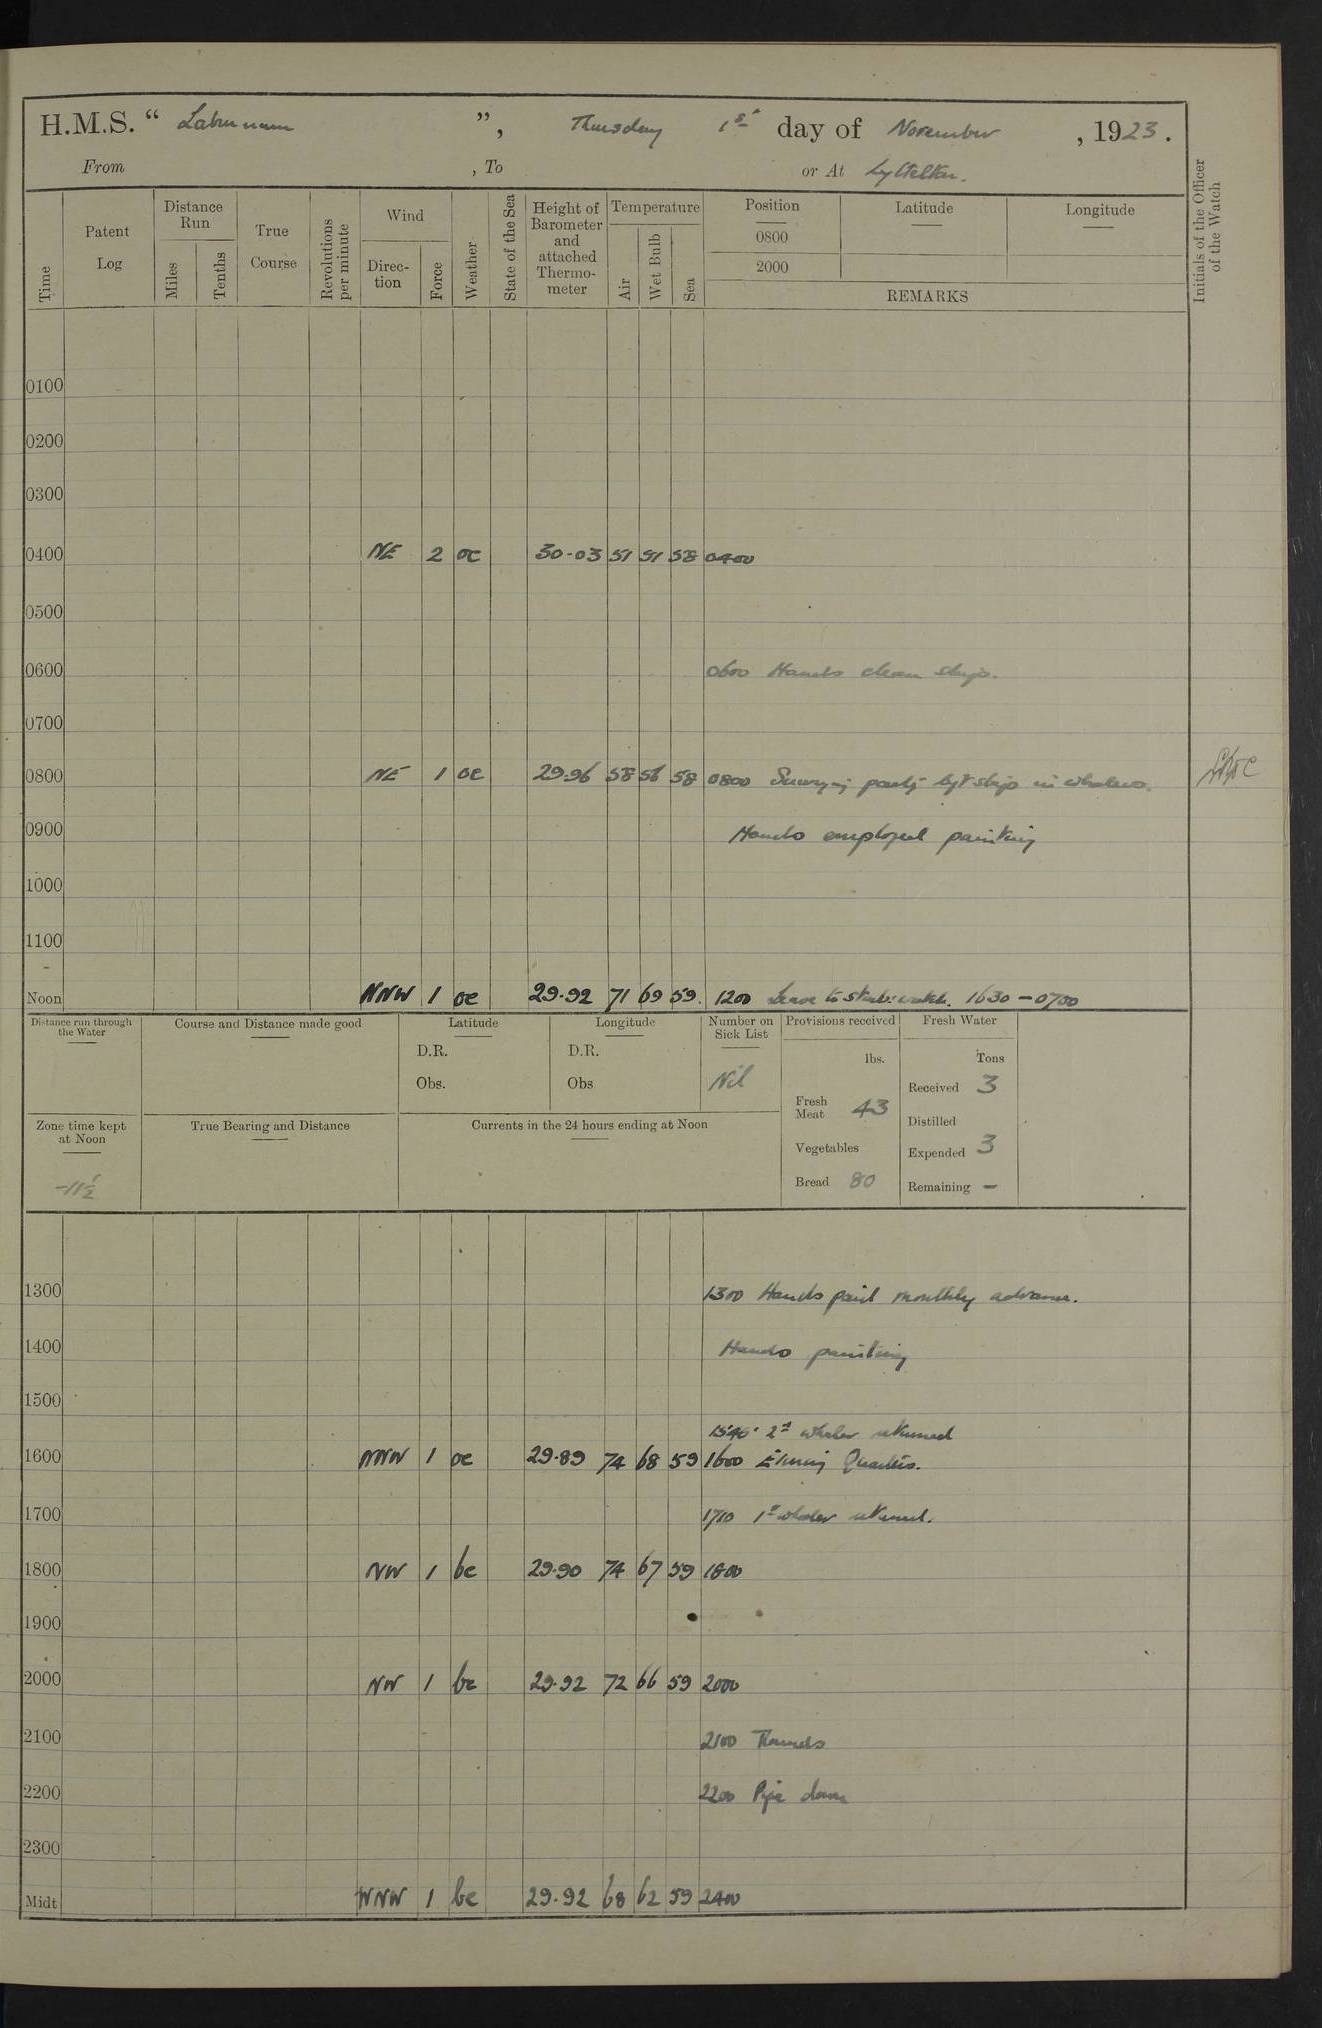 H.M.S. “ Laburnum ”, Thursday 1st day of November , 1923.
From , To or At Lyttelton.
Time Patent Log Distance Run Miles Tenths True Course Revolutions per minute Wind Direc-tion Force Weather State of the Sea Height of Barometer and attached Thermo-meter Temperature Air Wet Bulb Sea Position 0800 2000 Latitude Longitude REMARKS Initials of the Officer of the Watch
0100
0200
0300
0400 NE 2 oc 30·03 51 51 58 0400
0500
0600 0600 Hands clean ship.
0700
0800 NE 1 oc 29·96 58 56 58 0800 Surveying party left ship in whalers.
0900 Hands employed painting
1000
1100
Noon NNW 1 oc 29·92 71 69 59. 1200 Leave to starb: watch. 1630 – 0700
Distance run through the Water Course and Distance made good Latitude Longitude Number on Sick List Provisions received Fresh Water
D.R. D.R. lbs. Tons
Obs. Obs Nil Received 3
Fresh Meat 43 Distilled
Zone time kept at Noon True Bearing and Distance Currents in the 24 hours ending at Noon
Vegetables Expended 3
-11½ Bread 80 Remaining –
1300 1300 Hands paid monthly advance.
1400 Hands painting
1500
1545· 2nd whaler returned
1600 NNW 1 oc 29·89 74 68 59 1600 Evening Quarters.
1700 1710 1st whaler returned.
1800 NW 1 bc 29·90 74 67 59 1800
1900
2000 NW 1 bc 29·92 72 66 59 2000
2100 2100 Rounds
2200 2200 Pipe down
2300
Midt WNW 1 bc 29·92 68 62 59 2400